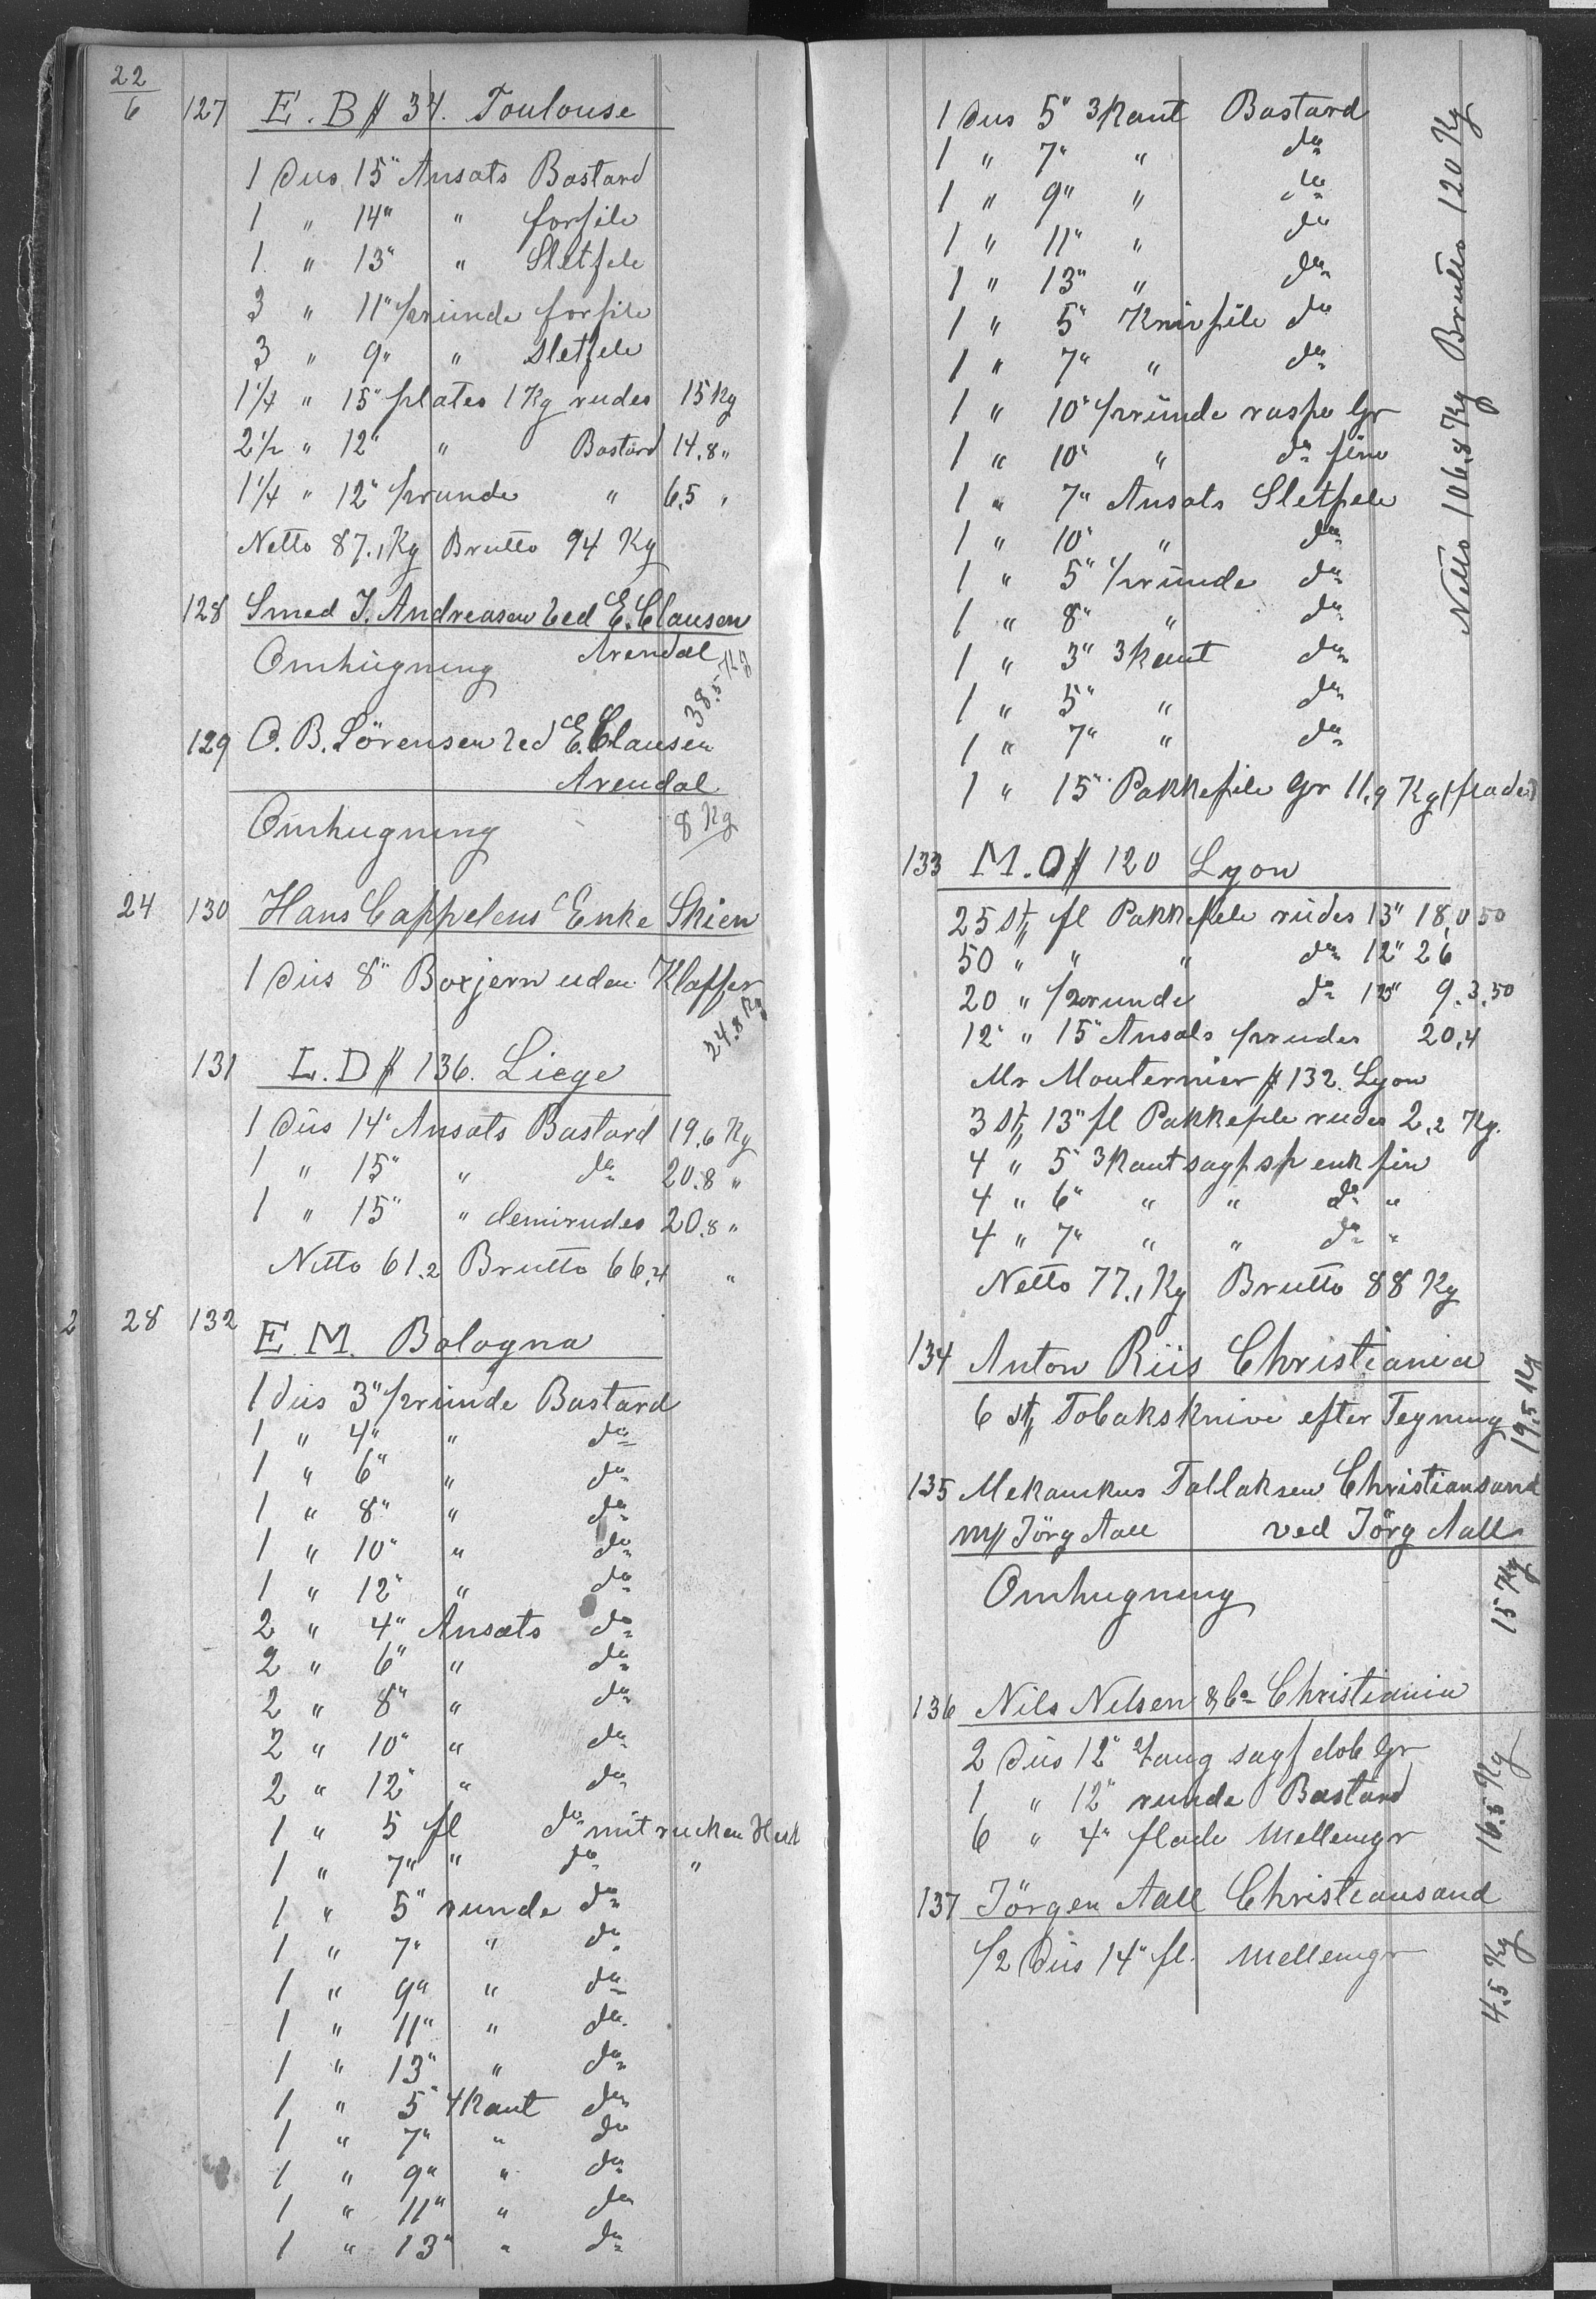 22/6 127 E. B # 34. Toulouse
1 Dus 15" Ansats Bastard
1 " 14" " forfile
1 " 13" " Sletfile
3 " 11" 1/2 runde forfile
3 " 9" " Sletfile
1 1/4 " 15" plates 1 Kg rudes 15 Kg
2 1/2 " 12" " Bastard 14.8 "
1 1/4 " 12" 1/2 runde " 6,5 "
Netto 87.1 Kg Brutto 94 Kg
128 Smed J. Andreasen ved E. Clausen
Arendal
Omhugning 38.5 Kg
129 O. B. Sörensen ved E. Clausen
Arendal
Omhugning 8 Kg
24 130 Hans Cappelens Enke Skien
1 Dus 8" Boxjern uden Klapper
24.8 Kg
131 L. D # 136. Liege
1 Dus 14" Ansats Bastard 19.6 Kg
1 " 15" " do 20.8 "
1 " 15" " demirudes 20.8 "
Netto 61.2 Brutto 66,4 "
2 28 132 E. M. Bologna
1 Dus 3" 1/2 runde Bastard
1 " 4" " do
1 " 6" " do
1 " 8" " do
1 " 10" " do
1 " 12" " do
2 " 4" Ansats do
2 " 6" " do
2 " 8" " do
2 " 10" " do
2 " 12" " do
1 " 5 fl do mit rucken
1 " 7" " do "
1 " 5" runde do
1 " 7" " do
1 " 9" " do
1 " 11" " do
1 " 13" " do
1 " 5" 4kant do
1 " 7" " do
1 " 9" " do
1 " 11" " do
1 " 13" " do
1 Dus 5" 3kant Bastard
1 " 7" " do
1 " 9" " do
1 " 11" " do
1 " 13" " do
1 " 5" Knivfile do
1 " 7" " do
1 " 10" 1/2 runde raspe Gr
1 " 10" " do fine
1 " 7" Ansats Sletfile
1 " 10" " do
1 " 5" 1/2 runde do
1 " 8" " do
1 " 3" 3kant do
1 " 5" " do
1 " 7" " do
1 " 15" Pakkefile Gr 11,9 Kg (flade)
Netto 106.8 Kg Brutto 120 Kg
133 M. O # 120 Lyon
25 St fl Pakkefile rudes 13" 18,0 50
50 " " " do 12" 26
20 " 1/2 runde do 12" 9.3.50
12 " 15" Ansats 1/2 rudes 20,4
Mr Mouternier # 132. Lyon
3 St 13" fl Pakkefile rudes 2,2 Kg.
4 " 5" 3kant sagf sp enk fin
4 " 6" " " do "
4 " 7" " " do "
Netto 77.1 Kg Brutto 88 Kg
134 Anton Riis Christiania
6 St Tobaksknive efter Tegning 19.5 Kg
135 Mekanikus Tallaksen Christiansand
m# Jörg Aall ved Jörg Aall
Omhugning 15 Kg
136 Nils Nilsen & Co Christiania
2 Dus 12" Tang sagf dob Gr
1 " 12" runde Bastard 16.5 Kg
6 " 4" flade Mellemgr
137 Jörgen Aall Christiansand
1/2 Dus 14" fl. Mellemgr 4.5 Kg